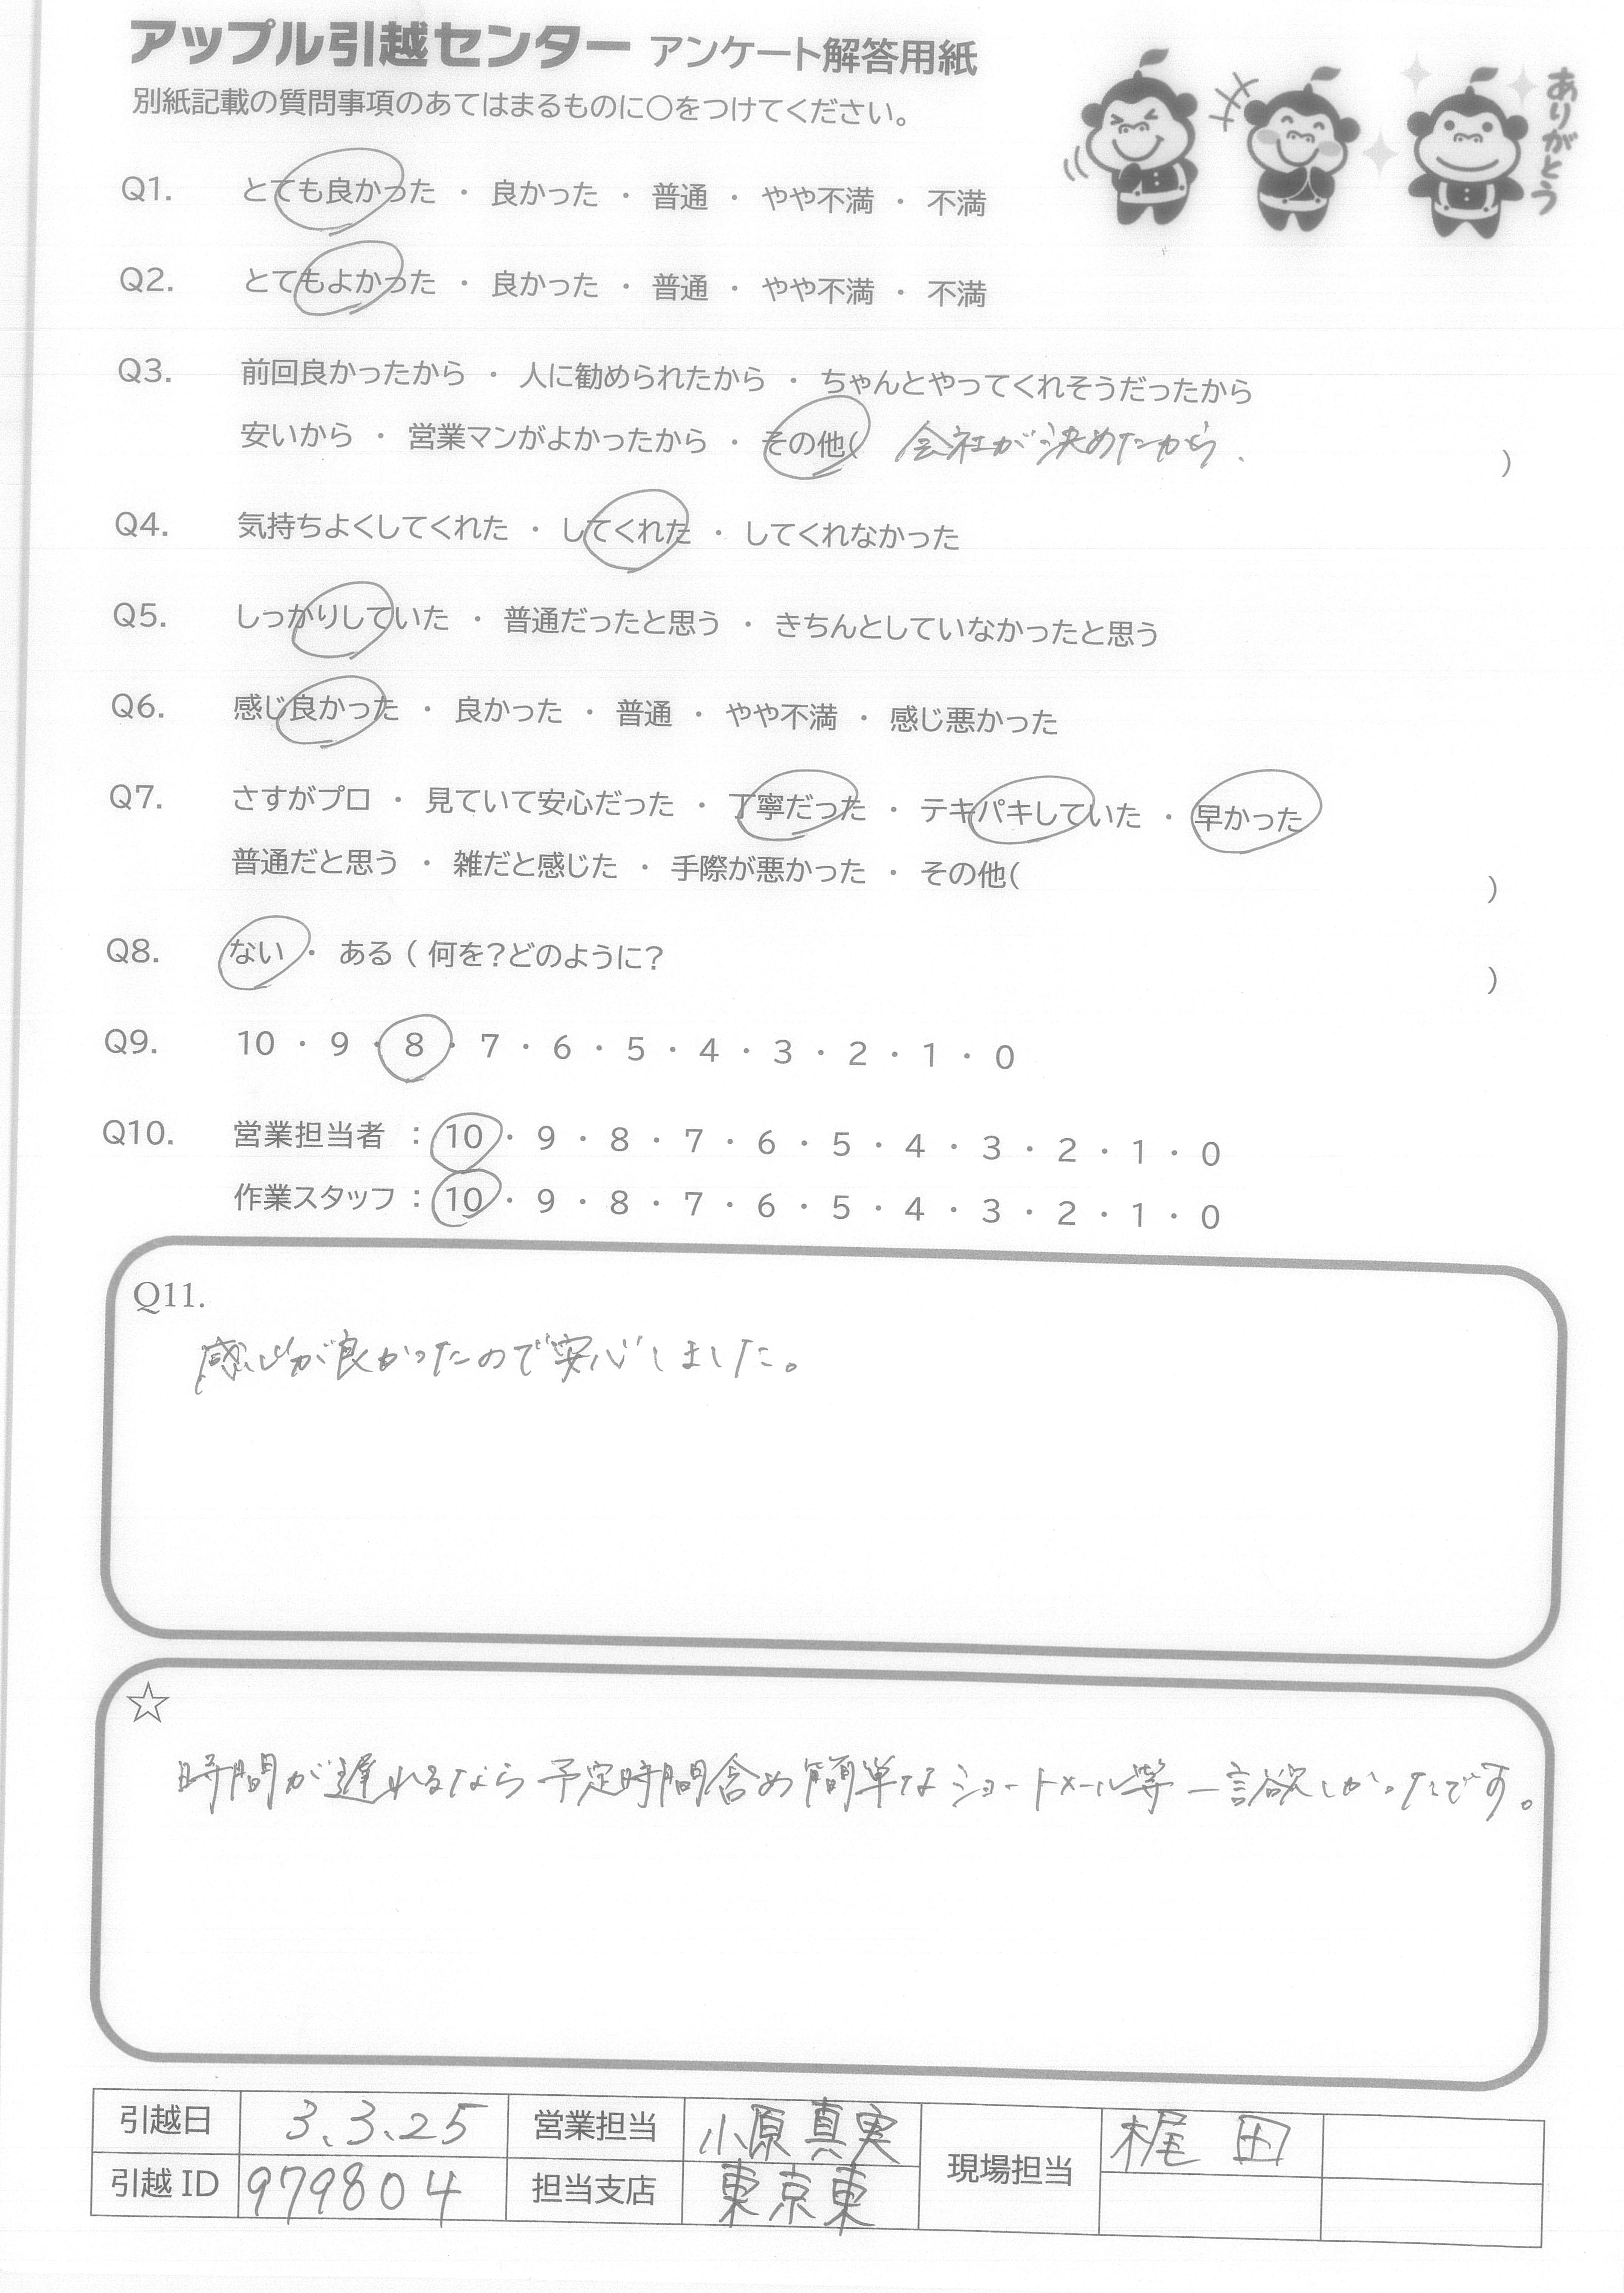 アップル引越センター アンケート解答用紙
別紙記載の質問事項のあてはまるものに〇をつけてください。
ありがとう
Q1. とても良かった ・ 良かった ・ 普通 ・ やや不満 ・ 不満
Q2. とてもよかった ・ 良かった ・ 普通 ・ やや不満 ・ 不満
Q3. 前回良かったから ・ 人に勧められたから ・ ちゃんとやってくれそうだったから
安いから ・ 営業マンがよかったから ・ その他( 会社が決めたから、 )
Q4. 気持ちよくしてくれた ・ してくれた ・ してくれなかった
Q5. しっかりしていた ・ 普通だったと思う ・ きちんとしていなかったと思う
Q6. 感じ良かった ・ 良かった ・ 普通 ・ やや不満 ・ 感じ悪かった
Q7. さすがプロ ・ 見ていて安心だった ・ 丁寧だった ・ テキパキしていた ・ 早かった
普通だと思う ・ 雑だと感じた ・ 手際が悪かった ・ その他( )
Q8. ない ・ ある ( 何を?どのように? )
Q9. 10 ・ 9 ・ 8 ・ 7 ・ 6 ・ 5 ・ 4 ・ 3 ・ 2 ・ 1 ・ 0
Q10. 営業担当者 : 10 ・ 9 ・ 8 ・ 7 ・ 6 ・ 5 ・ 4 ・ 3 ・ 2 ・ 1 ・ 0
作業スタッフ : 10 ・ 9 ・ 8 ・ 7 ・ 6 ・ 5 ・ 4 ・ 3 ・ 2 ・ 1 ・ 0
Q11.
感じが良かったので安心しました。
☆
時間が遅れるなら予定時間含め簡単なショートメール等一言欲しかったです。
引越日 3、3、25 営業担当 小原 真実 現場担当 梶田
引越 ID 979804 担当支店 東京東